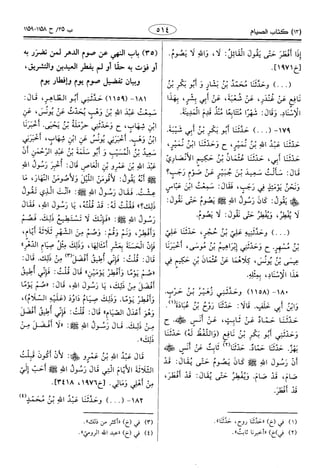 (١٣) كتاب الصيام
٥١٤
ب ٣٥/ ح ١١٥٨-١١٥٩
إِذَا أَفْطَرَ حَتَّى يَقُولَ الْقَائِلُ: لَا، وَاللَّهِ لَا يَصُومُ.
[ح١٩٧١].
(...) - وَحَدَّثَنَا مُحَمَّدُ بْنُ بَشَّارٍ وَأَبُو بَكْرِ بْنُ
نَافِعٍ عَنْ غُنْدَرٍ، عَنْ شُعْبَةَ، عَنْ أَبِي بِشْرٍ، بِهَذَا
الْإِسْنَادِ، وَقَالَ: شَهْرًا مُتَتَابِعًا مُنْذُ قَدِمَ الْمَدِينَةَ.
١٧٩- (...) حَدَّثَنَا أَبُو بَكْرِ بْنُ أَبِي شَيْبَةَ.
حَدَّثَنَا عَبْدُ اللَّهِ بْنُ نُمَيْرٍ، ح وَحَدَّثَنَا ابْنُ نُمَيْرٍ،
حَدَّثَنَا أَبِي، حَدَّثَنَا عُثْمَانُ بْنُ حَكِيمٍ الْأَنْصَارِيُّ
قَالَ: سَأَلْتُ سَعِيدَ بْنَ جُبَيْرٍ عَنْ صَوْمِ رَجَبٍ؟
وَنَحْنُ يَوْمَئِذٍ فِي رَجَبٍ، فَقَالَ: سَمِعْتُ ابْنَ عَبَّاسٍ
يَقُولُ: كَانَ رَسُولُ اللَّهِ ﷺ يَصُومُ حَتَّى نَقُولَ:
لَا يُفْطِرُ، وَيُفْطِرُ حَتَّى نَقُولَ: لَا يَصُومُ.
(...) - وَحَدَّثَنِيهِ عَلِيُّ بْنُ حُجْرٍ، حَدَّثَنَا عَلِيُّ
بْنُ مُسْهِرٍ. ح وَحَدَّثَنِي إِبْرَاهِيمُ بْنُ مُوسَى، أَخْبَرَنَا
عِيسَى بْنُ يُونُسَ، كِلَاهُمَا عَنْ عُثْمَانَ بْنِ حَكِيمٍ فِي
هَذَا الْإِسْنَادِ، بِمِثْلِهِ.
١٨٠- (١١٥٨) وَحَدَّثَنِي زُهَيْرُ بْنُ حَرْبٍ،
وَابْنُ أَبِي خَلَفٍ. قَالَا: حَدَّثَنَا رَوْحُ بْنُ عُبَادَةَ(١)،
حَدَّثَنَا حَمَّادٌ عَنْ ثَابِتٍ، عَنْ أَنَسٍ ﷺ ح
وَحَدَّثَنِي أَبُو بَكْرِ بْنُ نَافِعٍ (وَاللَّفْظُ لَهُ) حَدَّثَنَا
بَهْزٌ، حَدَّثَنَا حَمَّادٌ، حَدَّثَنَا(٢) ثَابِتٌ عَنْ أَنَسٍ
أَنَّ رَسُولَ اللَّهِ ﷺ كَانَ يَصُومُ حَتَّى يُقَالَ: قَدْ
صَامَ، قَدْ صَامَ. وَيُفْطِرُ حَتَّى يُقَالَ: قَدْ أَفْطَرَ،
قَدْ أَفْطَرَ.
(١) في (خ) «حدثنا روح، حدثنا».
(٢) في (خ) «أخبرنا ثابت».
(٣٥) باب النهي عن صوم الدهر لمن تضرر به
أو فوّت به حقًا أو لم يفطر العيدين والتشريق،
وبيان تفضيل صوم يوم وإفطار يوم
١٨١- (١١٥٩) حَدَّثَنِي أَبُو الطَّاهِرِ، قَالَ:
سَمِعْتُ عَبْدَ اللَّهِ بْنَ وَهْبٍ يُحَدِّثُ عَنْ يُونُسَ، عَنِ
ابْنِ شِهَابٍ، ح وَحَدَّثَنِي حَرْمَلَةُ بْنُ يَحْيَى. أَخْبَرَنَا
ابْنُ وَهْبٍ. أَخْبَرَنِي يُونُسُ عَنِ ابْنِ شِهَابٍ، أَخْبَرَنِي
سَعِيدُ بْنُ الْمُسَيَّبِ وَأَبُو سَلَمَةَ بْنُ عَبْدِ الرَّحْمَنِ أَنَّ
عَبْدَ اللَّهِ بْنَ عَمْرِو بْنِ الْعَاصِ قَالَ: أُخْبِرَ رَسُولُ اللَّهِ
ﷺ أَنَّهُ يَقُولُ: لَأَقُومَنَّ اللَّيْلَ وَلَأَصُومَنَّ النَّهَارَ، مَا
عِشْتُ. فَقَالَ رَسُولُ اللَّهِ ﷺ: «آنْتَ الَّذِي تَقُولُ
ذَلِكَ؟» فَقُلْتُ لَهُ: قَدْ قُلْتُهُ، يَا رَسُولَ اللَّهِ، فَقَالَ
رَسُولُ اللَّهِ ﷺ: «فَإِنَّكَ لَا تَسْتَطِيعُ ذَلِكَ. فَصُمْ
وَأَفْطِرْ، وَنَمْ وَقُمْ. وَصُمْ مِنَ الشَّهْرِ ثَلَاثَةَ أَيَّامٍ،
فَإِنَّ الْحَسَنَةَ بِعَشْرِ أَمْثَالِهَا، وَذَلِكَ مِثْلُ صِيَامِ الدَّهْرِ»
قَالَ: قُلْتُ: فَإِنِّي أُطِيقُ أَفْضَلَ(٣) مِنْ ذَلِكَ. قَالَ:
«صُمْ يَوْمًا وَأَفْطِرْ يَوْمَيْنِ» قَالَ: قُلْتُ: فَإِنِّي أُطِيقُ
أَفْضَلَ مِنْ ذَلِكَ، يَا رَسُولَ اللَّهِ، قَالَ: «صُمْ يَوْمًا
وَأَفْطِرْ يَوْمًا، وَذَلِكَ صِيَامُ دَاوُدَ (عَلَيْهِ السَّلَامُ)،
وَهُوَ أَعْدَلُ الصِّيَامِ» قَالَ: قُلْتُ: فَإِنِّي أُطِيقُ أَفْضَلَ
مِنْ ذَلِكَ. قَالَ رَسُولُ اللَّهِ ﷺ: «لَا أَفْضَلَ مِنْ
ذَلِكَ».
قَالَ عَبْدُ اللَّهِ بْنُ عَمْرٍو: لَأَنْ أَكُونَ قَبِلْتُ
الثَّلَاثَةَ الْأَيَّامَ الَّتِي قَالَ رَسُولُ اللَّهِ ﷺ، أَحَبُّ إِلَيَّ
مِنْ أَهْلِي وَمَالِي. [ح١٩٧٦، ٣٤١٨].
١٨٢- (...) وَحَدَّثَنَا عَبْدُ اللَّهِ بْنُ مُحَمَّدٍ(٤)
(٣) في (خ) «أكثر من ذلك».
(٤) في (خ) «عبد الله الرومي».